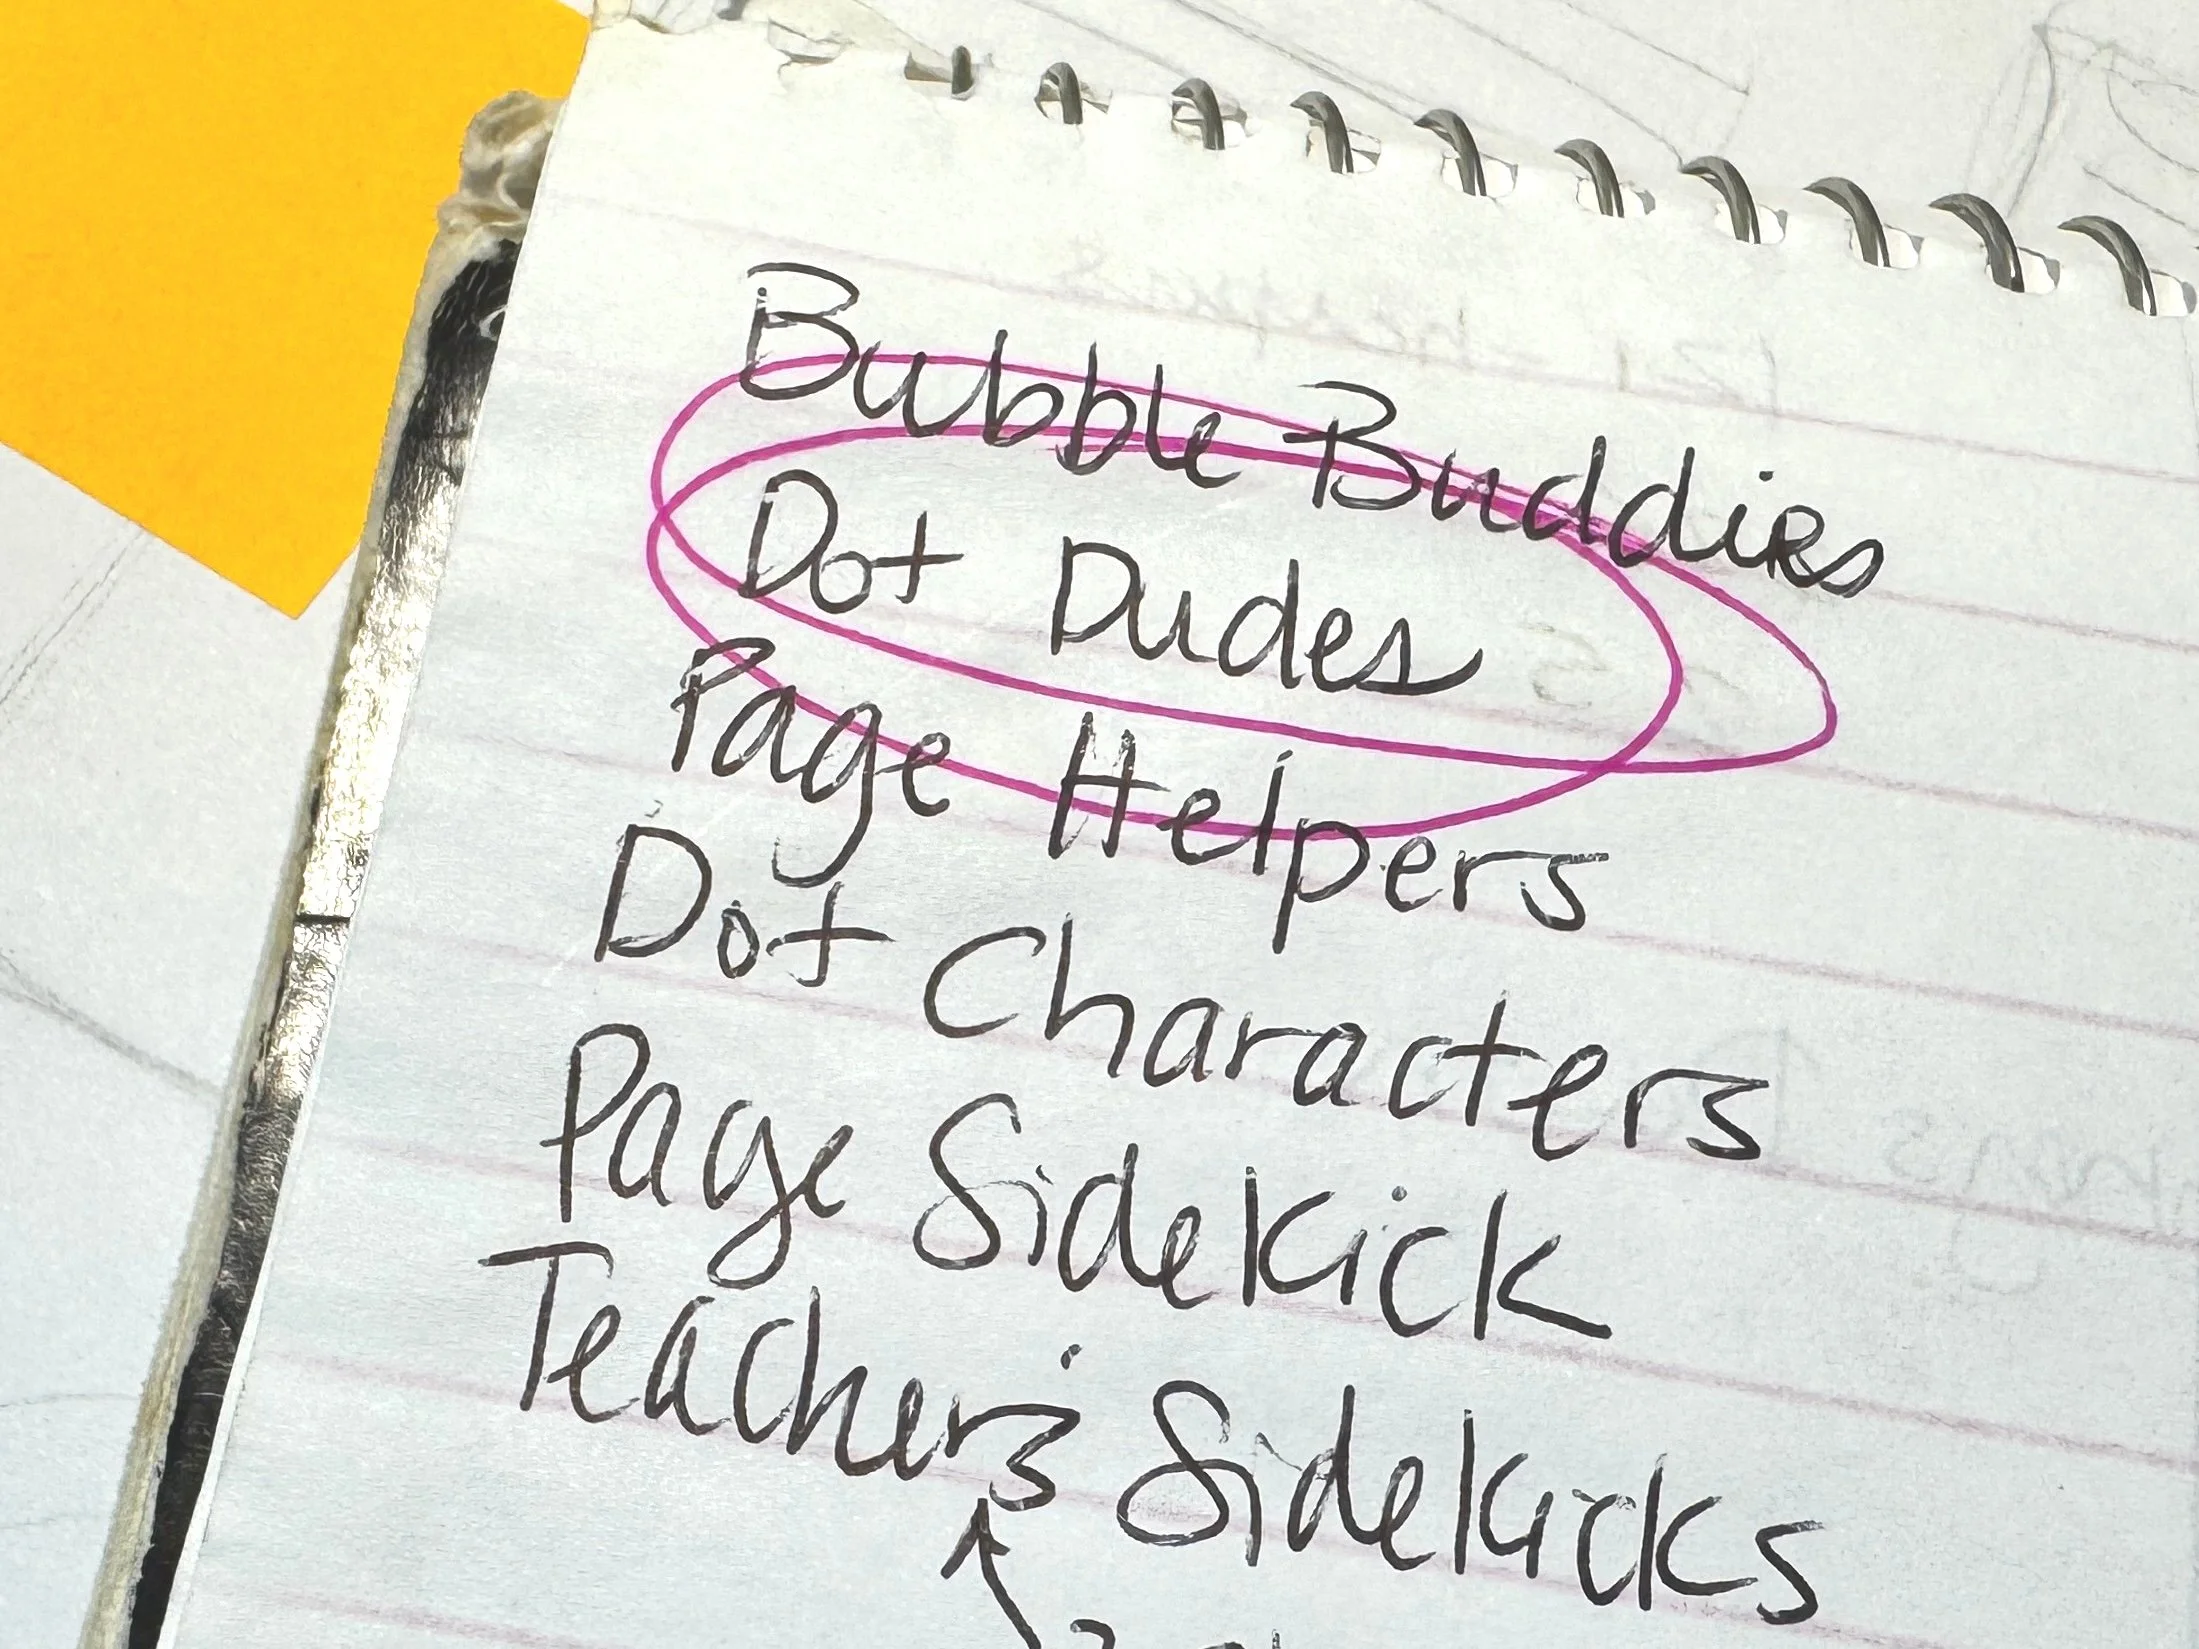 Bubble Buddies
Dot Dudes
Page Helpers
Dot Characters
Page Sidekick
Teacher's Sidekicks